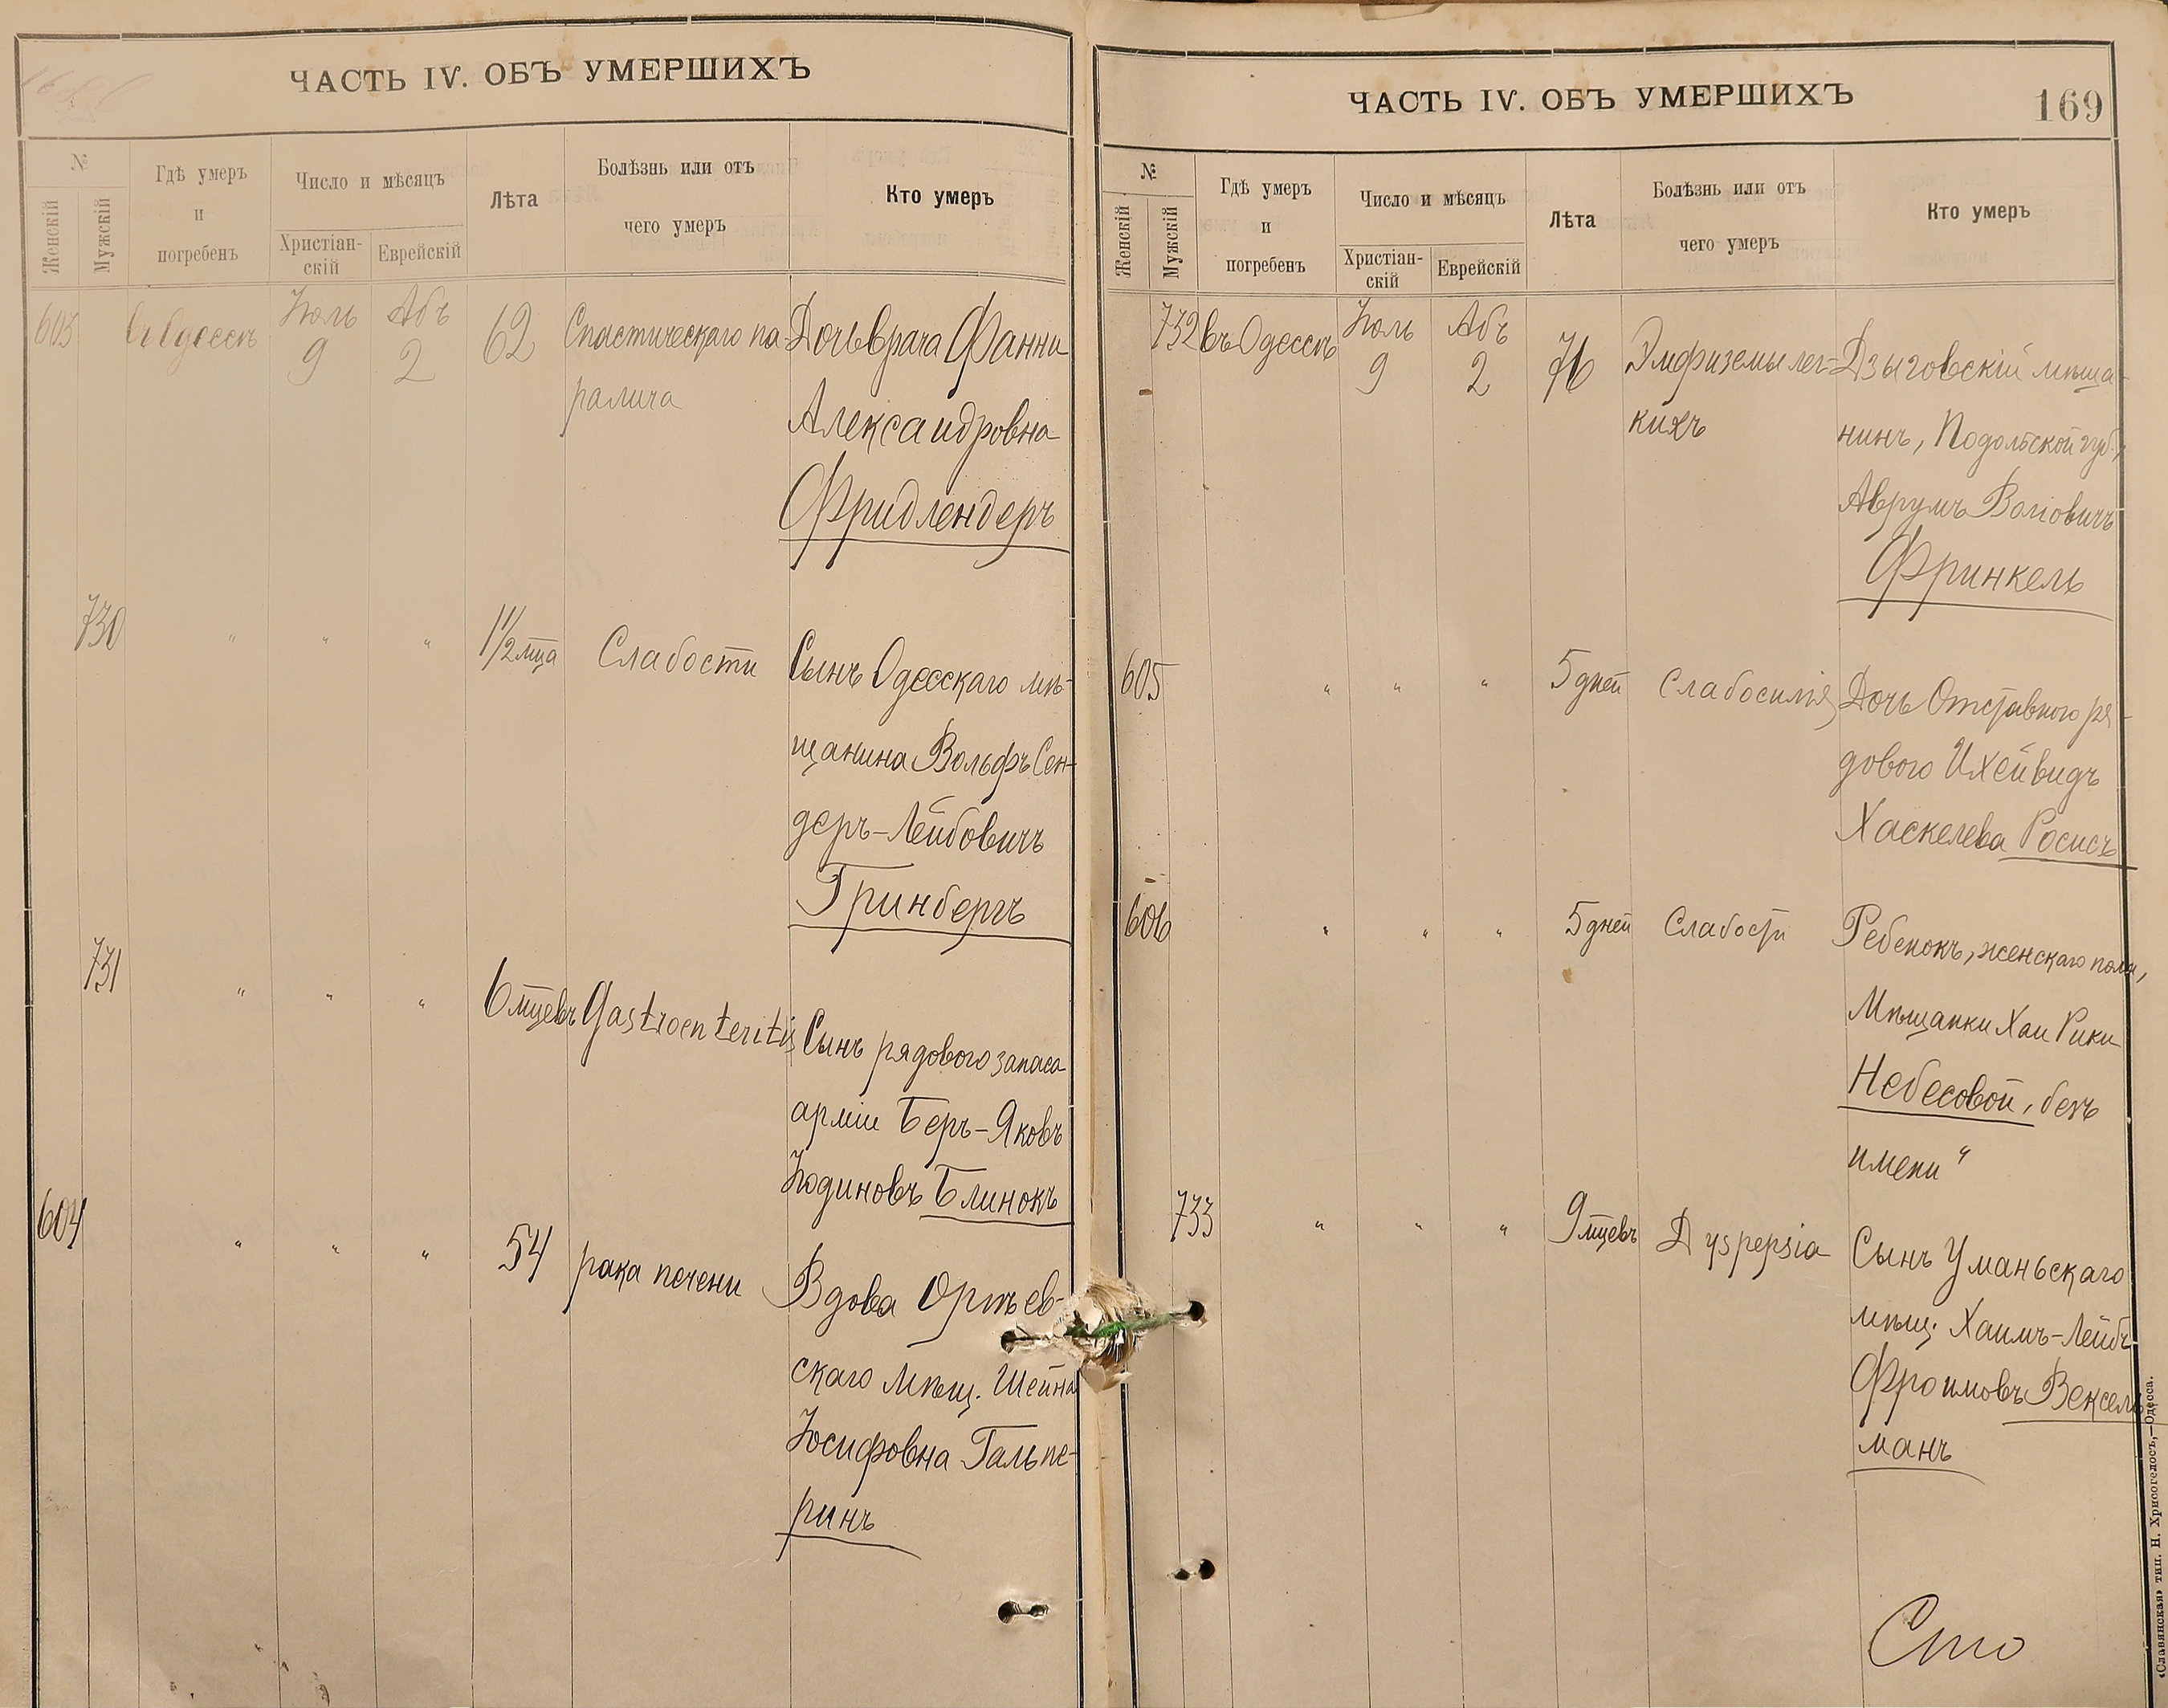 ЧАСТЬ IV. ОБЪ УМЕРШИХЪ
№
Женскій
Мужскій
Гдѣ умеръ
и
погребенъ
Число и мѣсяцъ
Христіан-
скій
Еврейскій
Лѣта
Болѣзнь или отъ
чего умеръ
Кто умеръ
603
въ Одессѣ
Іюль
9
Абъ
2
62
Спастическаго па-
ралича
Дочь врача Фанни
Александровна
Фридлендеръ
730
"
"
"
1 1/2 мца
Слабости
Сынъ Одесскаго мѣ-
щанина Вольфъ Сен-
деръ-Лейбовичъ
Гринбергъ
731
"
"
"
6 мцевъ
Gastroenteritis
Сынъ рядового запаса
арміи Беръ-Яковъ
Іодиновъ Блинокъ
604
"
"
"
54
рака печени
Вдова
скаго мѣщ. Шейна
Іосифовна Гальпе-
ринъ
ЧАСТЬ IV. ОБЪ УМЕРШИХЪ
169
№
Женскій
Мужскій
Гдѣ умеръ
и
погребенъ
Число и мѣсяцъ
Христіан-
скій
Еврейскій
Лѣта
Болѣзнь или отъ
чего умеръ
Кто умеръ
732
въ Одессѣ
Іюль
9
Абъ
2
76
Эмфиземы лег-
кихъ
Дзыговскій мѣща-
нинъ, Подольской губ.,
Аврумъ Волковичъ
Фринкель
605
"
"
"
5 дней
Слабосилія
Дочь Отставного ря-
дового Ихейвидъ
Хаскелева Росисъ
606
"
"
"
5 дней
Слабости
Ребенокъ, женскаго пола,
Мѣщанки Хаи Рики
Небесовой, безъ
имени "
733
"
"
"
9 мцевъ
Dyspepsia
Сынъ Уманьскаго
мѣщ. Хаимъ-Лейбъ
Фроимовъ Вексель-
манъ
Сто
«Славянская» тип. Н. Хрисогелосъ,—Одесса.